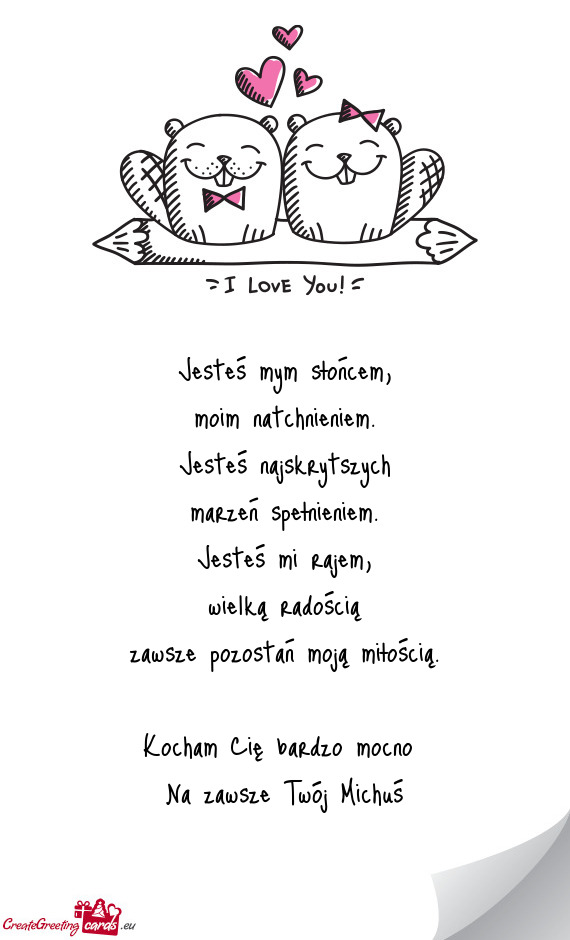 I LOVE YOU!
Jesteś mym słońcem,
moim natchnieniem.
Jesteś najskrytszych
marzeń spełnieniem.
Jesteś mi rajem,
wielką radością
zawsze pozostań moją miłością.
Kocham Cię bardzo mocno
Na zawsze Twój Michuś
CreateGreeting cards .eu